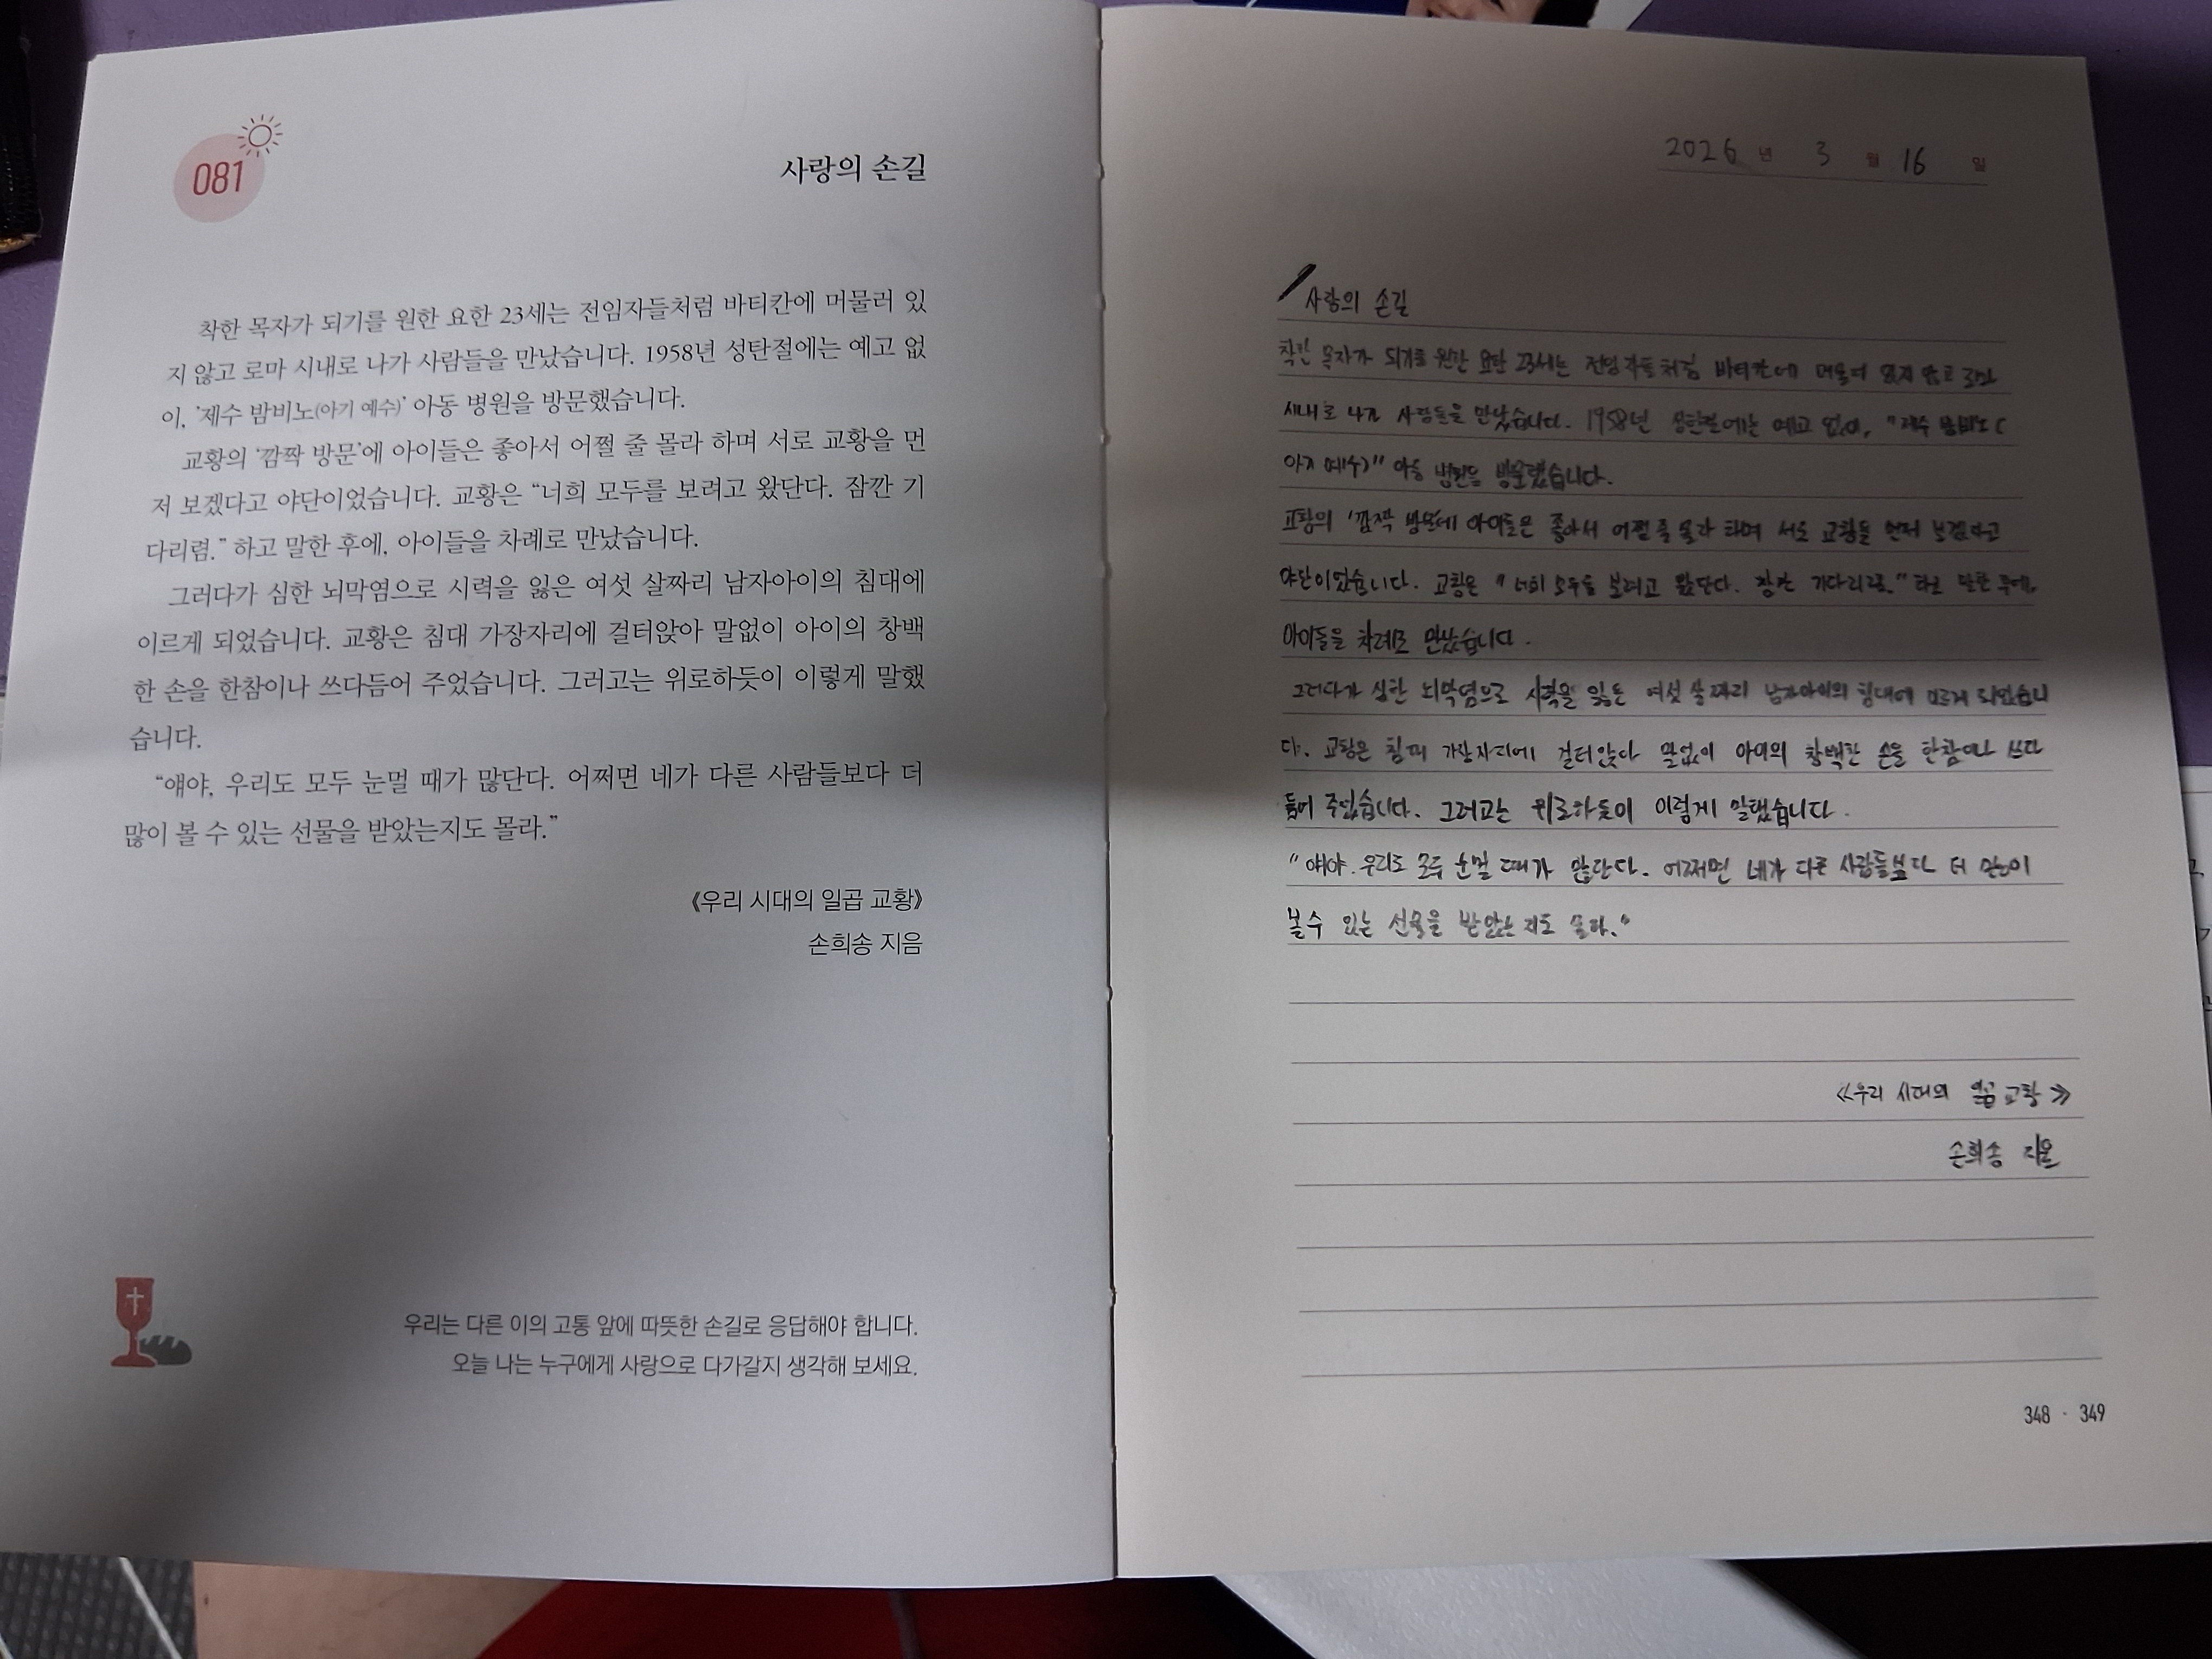 081
사랑의 손길
착한 목자가 되기를 원한 요한 23세는 전임자들처럼 바티칸에 머물러 있
지 않고 로마 시내로 나가 사람들을 만났습니다. 1958년 성탄절에는 예고 없
이, '제수 밤비노(아기 예수)' 아동 병원을 방문했습니다.
교황의 '깜짝 방문'에 아이들은 좋아서 어쩔 줄 몰라 하며 서로 교황을 먼
저 보겠다고 야단이었습니다. 교황은 “너희 모두를 보려고 왔단다. 잠깐 기
다리렴.” 하고 말한 후에, 아이들을 차례로 만났습니다.
그러다가 심한 뇌막염으로 시력을 잃은 여섯 살짜리 남자아이의 침대에
이르게 되었습니다. 교황은 침대 가장자리에 걸터앉아 말없이 아이의 창백
한 손을 한참이나 쓰다듬어 주었습니다. 그러고는 위로하듯이 이렇게 말했
습니다.
“얘야, 우리도 모두 눈멀 때가 많단다. 어쩌면 네가 다른 사람들보다 더
많이 볼 수 있는 선물을 받았는지도 몰라.”
《우리 시대의 일곱 교황》
손희송 지음
우리는 다른 이의 고통 앞에 따뜻한 손길로 응답해야 합니다.
오늘 나는 누구에게 사랑으로 다가갈지 생각해 보세요.
2026 년 3 월 16 일
사랑의 손길
착한 목자가 되기를 원한 요한 23세는 전임자들처럼 바티칸에 머물러 있지 않고 로마
시내로 나가 사람들을 만났습니다. 1958년 성탄절에는 예고 없이, "제수 밤비노 (
아기 예수)" 아동 병원을 방문했습니다.
교황의 '깜짝 방문에 아이들은 좋아서 어쩔 줄 몰라 하며 서로 교황을 먼저 보겠다고
야단이었습니다. 교황은 "너희 모두를 보려고 왔단다. 잠깐 기다리렴." 하고 말한 후에,
아이들을 차례로 만났습니다.
그러다가 심한 뇌막염으로 시력을 잃은 여섯 살짜리 남자아이의 침대에 이르게 되었습니
다. 교황은 침대 가장자리에 걸터앉아 말없이 아이의 창백한 손을 한참이나 쓰다
듬어 주었습니다. 그러고는 위로하듯이 이렇게 말했습니다.
"얘야. 우리도 모두 눈멀 때가 많단다. 어쩌면 네가 다른 사람들보다 더 많이
볼 수 있는 선물을 받았는지도 몰라."
《우리 시대의 일곱 교황》
손희송 지음
348 · 349